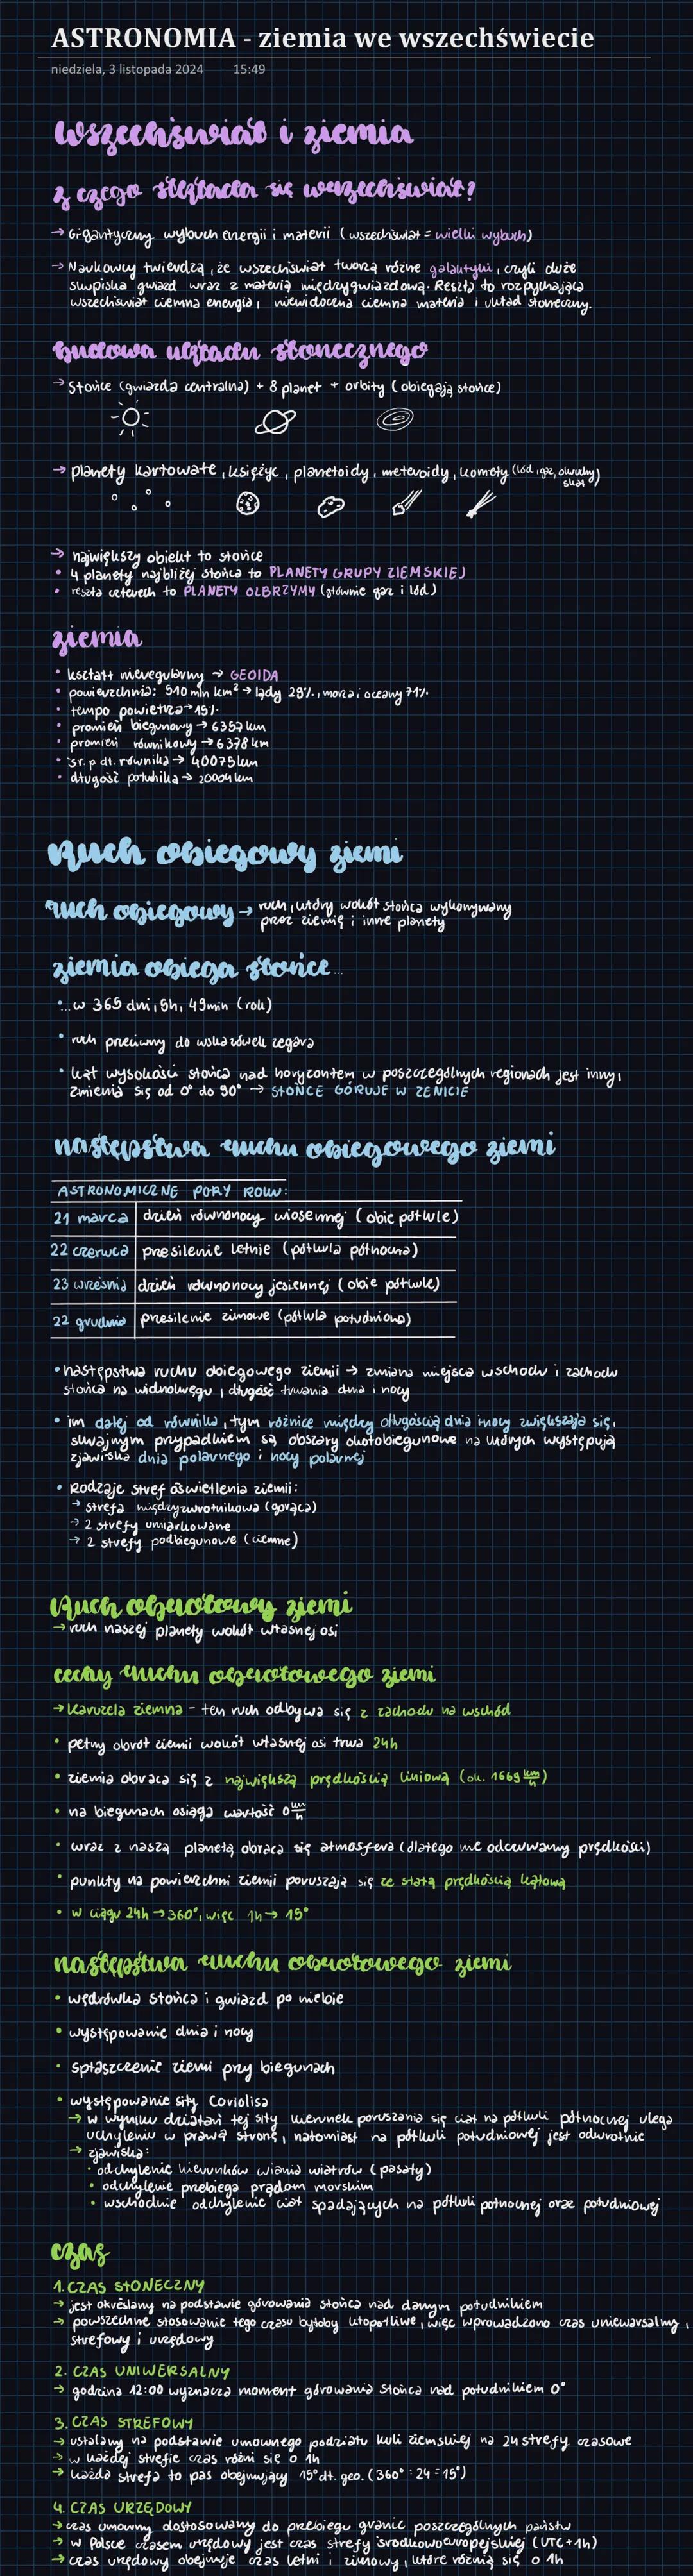 ASTRONOMIA - ziemia we wszechświecie
niedziela, 3 listopada 2024 15:49
Wszechświat i ziemia
z czego składa się wszechświat?
→ Gigantyczny wybuch energii i materii (wszechświat = wielki wybuch)
→ Naukowcy twierdzą, że wszechświat tworzą różne galaktyki, czyli duże
skupiska gwiazd wraz z materią międzygwiazdową. Reszta to rozpychająca
wszechświat ciemna energia, niewidoczna ciemna materia i układ słoneczny.
budowa układu słonecznego
→ Słońce (gwiazda centralna) + 8 planet + orbity (obiegają słońce)
→ planety karłowate, księżyc, planetoidy, meteroidy, komety (lód, gaz, okruchy
skał)
→ największy obiekt to słońce
• 4 planety najbliżej słońca to PLANETY GRUPY ZIEMSKIEJ
• reszta czterech to PLANETY OLBRZYMY (głównie gaz i lód)
ziemia
• kształt nieregularny → GEOIDA
• powierzchnia: 510 mln km² → lądy 29%, morza i oceany 71%
• tempo powietrza → 15%
• promień biegunowy → 6357 km
• promień równikowy → 6378 km
• śr. p dł. równika → 40075 km
• długość południka → 20004 km
Ruch obiegowy ziemi
ruch obiegowy → ruch, który wokół słońca wykonywany
przez ziemię i inne planety
ziemia obiega słońce...
•...w 365 dni, 5h, 49min (rok)
• ruch przeciwny do wskazówek zegara
• kąt wysokości słońca nad horyzontem w poszczególnych regionach jest inny,
zmienia się od 0° do 90° → SŁOŃCE GÓRUJE W ZENICIE
następstwa ruchu obiegowego ziemi
ASTRONOMICZNE PORY ROKU:
21 marca dzień równonocy wiosennej (obie półkule)
22 czerwca przesilenie letnie (półkula północna)
23 września dzień równonocy jesiennej (obie półkule)
22 grudnia przesilenie zimowe (półkula południowa)
• następstwa ruchu obiegowego ziemii → zmiana miejsca wschodu i zachodu
słońca na widnokręgu, długość trwania dnia i nocy
• im dalej od równika, tym różnice między długością dnia i nocy zwiększają się,
skrajnym przypadkiem są obszary okołobiegunowe na których występują
zjawiska dnia polarnego i nocy polarnej
• Rodzaje stref oświetlenia ziemii:
→ strefa międzyzwrotnikowa (gorąca)
→ 2 strefy umiarkowane
→ 2 strefy podbiegunowe (ciemne)
Ruch obrotowy ziemi
→ ruch naszej planety wokół własnej osi
cechy ruchu obrotowego ziemi
→ Karuzela ziemna - ten ruch odbywa się z zachodu na wschód
• pełny obrót ziemii wokół własnej osi trwa 24h
• ziemia obraca się z największą prędkością liniową (ok. 1669 km/h)
• na biegunach osiąga wartość 0 km/h
• wraz z naszą planetą obraca się atmosfera (dlatego nie odczuwamy prędkości)
• punkty na powierzchni ziemii poruszają się ze stałą prędkością kątową
• w ciągu 24h → 360°, więc 1h → 15°
następstwa ruchu obrotowego ziemi
• wędrówka słońca i gwiazd po niebie
• występowanie dnia i nocy
• spłaszczenie ziemi przy biegunach
• występowanie siły Coriolisa
→ w wyniku działań tej siły kierunek poruszania się ciał na półkuli północnej ulega
uchyleniu w prawą stronę, natomiast na półkuli południowej jest odwrotnie
→ zjawiska:
• odchylenie kierunków wiania wiatrów (pasaty)
• odchylenie przebiega prądom morskim
• wschodnie odchylenie ciał spadających na półkuli północnej oraz południowej
czas
1. CZAS SŁONECZNY
→ jest określany na podstawie górowania słońca nad danym południkiem
→ powszechne stosowanie tego czasu byłoby kłopotliwe, więc wprowadzono czas uniewersalny,
strefowy i urzędowy
2. CZAS UNIWERSALNY
→ godzina 12:00 wyznacza moment górowania słońca nad południkiem 0°
3. CZAS STREFOWY
→ ustalany na podstawie umownego podziału kuli ziemskiej na 24 strefy czasowe
→ w każdej strefie czas różni się o 1h
→ każda strefa to pas obejmujący 15° dł. geo. (360° : 24 = 15°)
4. CZAS URZĘDOWY
→ czas umowny dostosowany do przebiegu granic poszczególnych państw
→ w Polsce czasem urzędowy jest czas strefy środkowoeuropejskiej (UTC+1h)
→ czas urzędowy obejmuje czas letni i zimowy, które różnią się o 1h